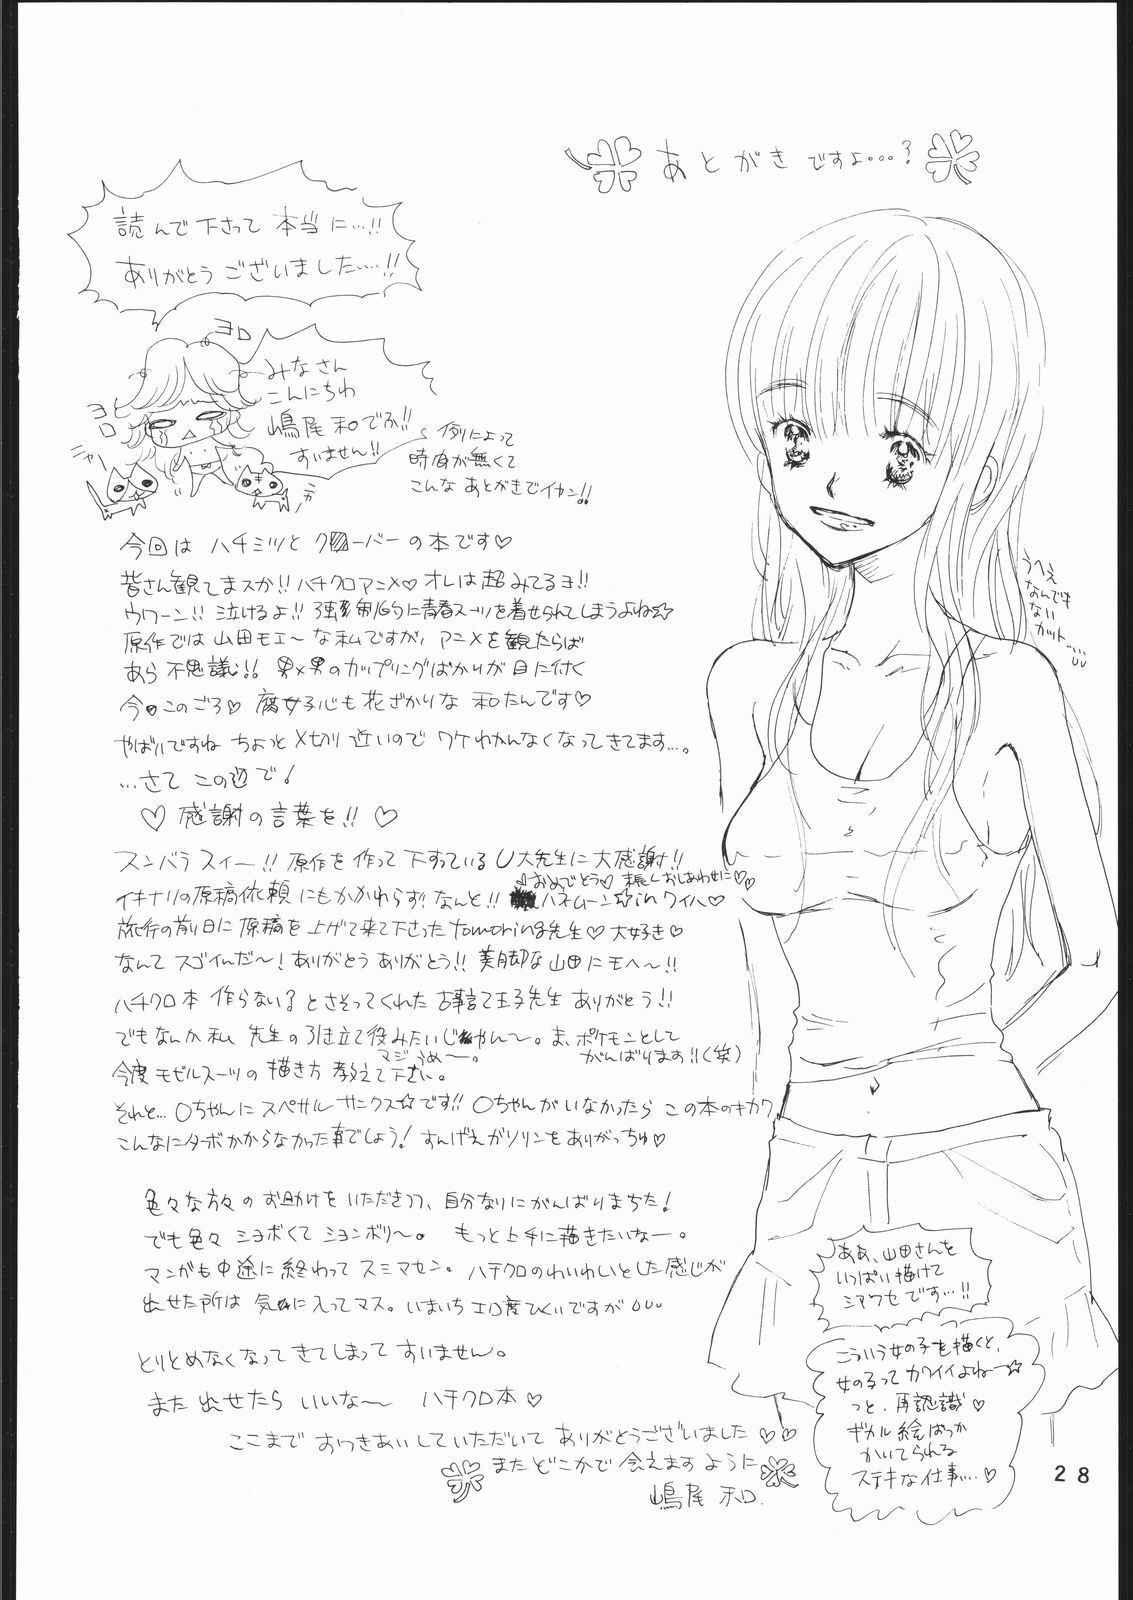 あとがきですよ…?
読んで下さって本当に…!!
ありがとうございました…!!
ヨロ
ヨロ
みなさん
こんにちわ
嶋尾和でふ!!
すいません!!
例によって
時間が無くて
こんなあとがきでイカン!!
ニャー
今回は ハチミツとク□ーバーの本です♡
皆さん観てまスか!! ハチクロアニメ♡ オレは超みてるヨ!!
ウワーン!! 泣けるよ!! 強制的に青春スーツを着せられてしまうよね☆
原作では山田モエ〜な私ですが、アニメを観たらば
あら不思議!! 男×男のカップリングばかりが目に付く
今日このごろ♡ 腐女子心も花ざかりな 和たんです♡
やばいですね ちょっと〆切り近いので ワケわかんなくなってきてます…。
…さて この辺で!
♡ 感謝の言葉を!! ♡
スンバラスィー!! 原作を作って下すっているU大先生に大感謝!!
イキナリの原稿依頼にもかかわらず!なんと!! ハネムーン☆inワイハ♡
♡おめでとう♡ 末長しおしあわせに♡♡
旅行の前日に原稿を上げて来て下さったtomoring先生♡大好き♡
なんてスゴイんだ〜! ありがとうありがとう!! 美脚な山田にモヘ〜!!
ハチクロ本 作らない? とさそってくれた 古事言て王子先生 ありがとう!!
でもなんか私 先生の引き立て役みたいじゃん〜。ま、ポケモンとして
がんばります!!(笑)
マジうめ〜。
今度モゼルスーツの描き方教えて下さい。
それと… 〇ちゃんにスペサルサンクス☆です!! 〇ちゃんがいなかったら この本のキカク
こんなにターボかからなかった事でしょう! すんげえガソリンをありがっちゅ♡
色々な方々のお助けをいただきつつ、自分なりにがんばりまちた!
でも色々ショボくてションボリ〜。 もっと上手に描きたいなー。
マンガも中途に終わってスミマセン。ハチクロのわいわいとした感じが
出せた所は気に入ってマス。いまいちエロ度ひくいですがUUU
とりとめなくなってきてしまってすいません。
また出せたらいいな〜 ハチクロ本♡
ここまでおつきあいしていただいてありがとうございました♡♡
またどこかで会えますように
嶋尾 和.
うへえ
なんでも
ない
カット…UU
ああ、山田さんを
いっぱい描けて
シアワセです…!!
こういう女の子を描くと、
女の子ってカワイイよねー☆
っと、再認識♡
ギカル絵ばっか
かいてられる
ステキな仕事…♡
28